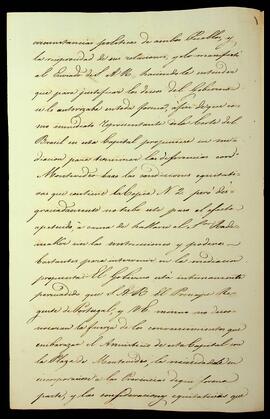 circunstancias politicas de ambos Pueblos, y
la seguridad de sus relaciones, y lo manifestó
al Enviado del S.A.R. haciendole entender
que para justificar los deseos del Gobierno
se le autorizaba en toda forma, a fin de que co-
mo inmediato Representante de la Corte del
Brasil en esta Capital propusiese su me-
diacion para terminar las diferencias con
Montevideo bajo las condiciones equitati-
vas que contiene la Copia N. 2. pero des-
graciadamente no tubo este paso el efecto
apetecido a causa de hallarse el Sor. Rade-
maker sin las instrucciones y poderes
bastantes para intervenir en la mediacion
propuesta. El Gobierno está intimamente
persuadido que S.A.R. El Principe Re-
gente de Portugal, y VE. mismo no des-
conoceran la fuerza de los convencimientos que
embarazan el Armisticio de esta Capital con
la Plaza de Montevideo, la necesidad de su
incorporacion a las Provincias de que forma
parte, y las consideraciones equitativas que